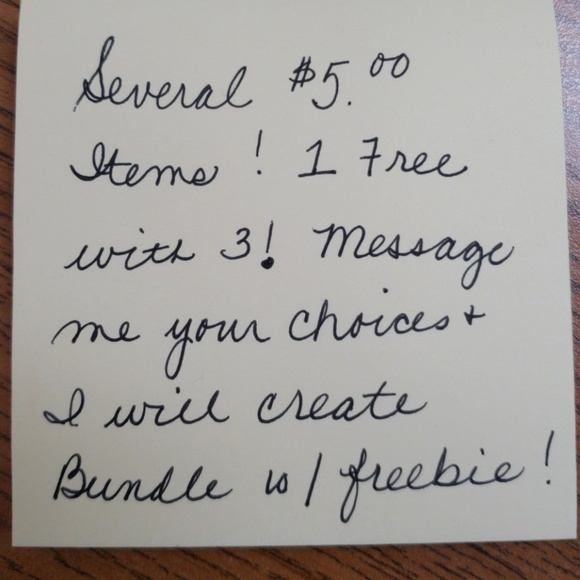 Several $5.00
Items! 1 Free
with 3! Message
me your choices +
I will create
Bundle w/ freebie!